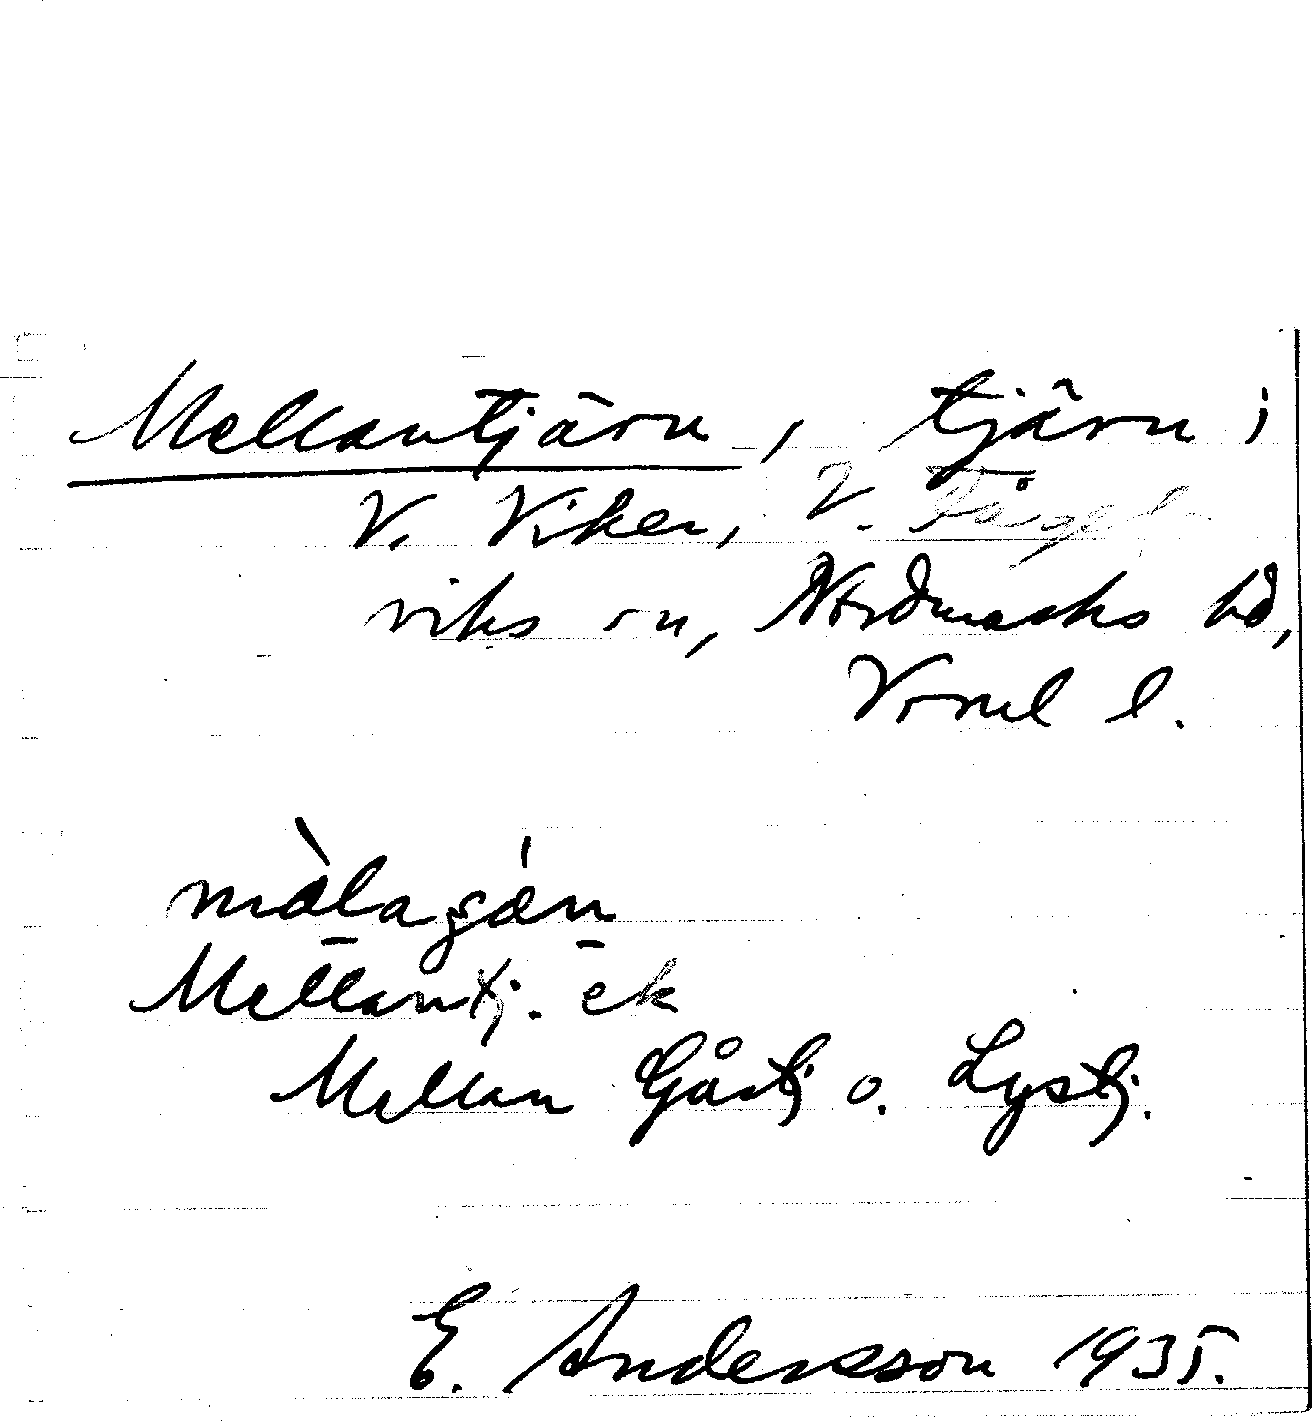 Mellantjärn, tjärn i
V. Viker, V. Fågel-
viks sn, Nordmarks hd,
Vrml l.
Mellantj. ek
Mellan Gåstj o. Lystj.
E. Andersson 1935.